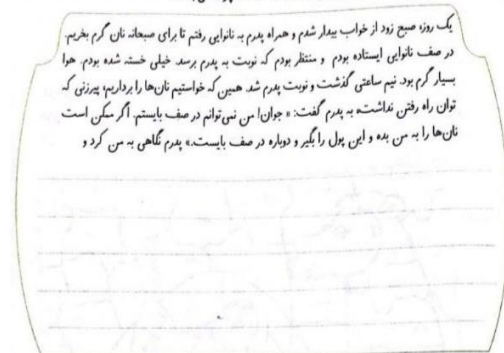 یک روزه صبح زود از خواب بیدار شدم و همراه پدرم به نانوایی رفتم تا برای صبحانه نان گرم بخریم.
در صف نانوایی ایستاده بودم و منتظر بودم که نوبت به پدرم برسد. خیلی خسته شده بودم. هوا
بسیار گرم بود. نیم ساعتی گذشت و نوبت پدرم شد. همین که خواستیم نان‌ها را برداریم، پیرزنی که
توان راه رفتن نداشت، به پدرم گفت: « جوان! من نمی‌توانم در صف بایستم. اگر ممکن است
نان‌ها را به من بده و این پول را بگیر و دوباره در صف بایست.» پدرم نگاهی به من کرد و